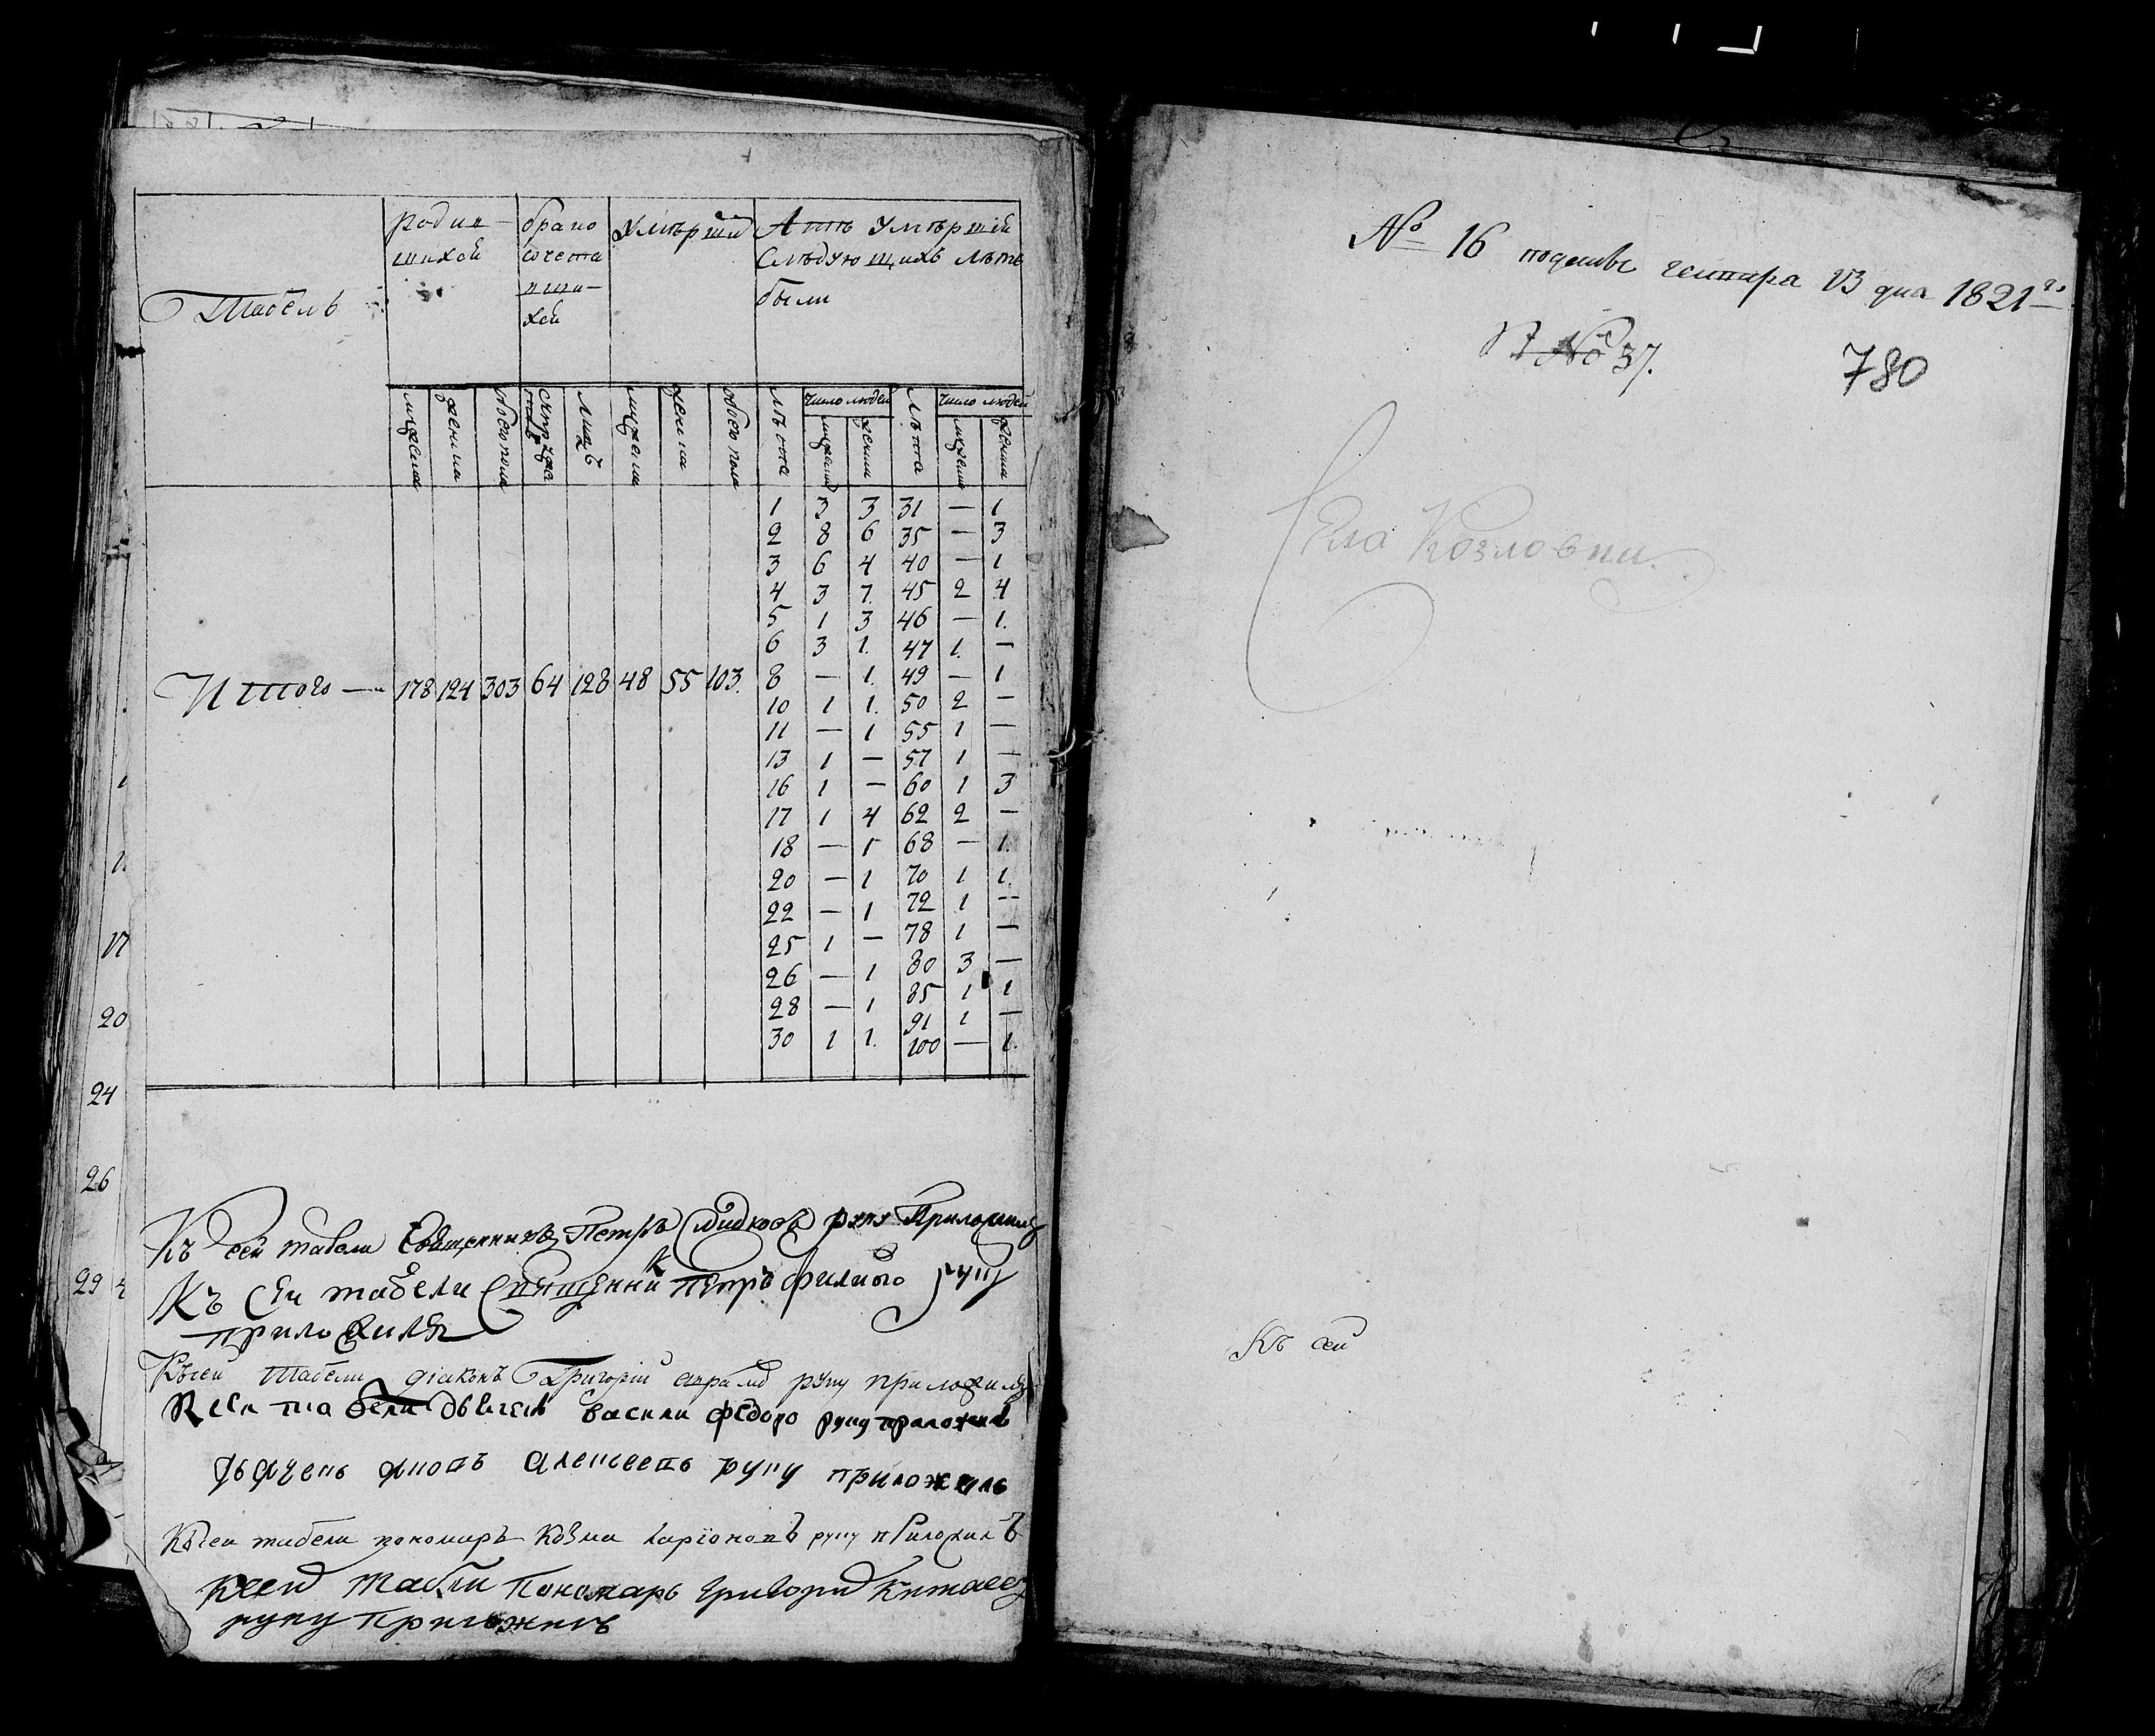 Табель
Родив-
шихся
брако
сочета
вши-
хся
Умѣрши
А тѣ умѣршїй
слѣдующихъ лѣтъ
были
мужеска
женска
обоего пола
мужеска
женска
обоего пола
лѣта
число людей
мужеска
женска
лѣта
число людей
мужеска
женска
1 3 3 31 — 1
2 8 6 35 — 3
3 6 4 40 — 1
4 3 7. 45 2 4
5 1 3 46 — 1.
6 3 1. 47 1. —
8 — 1. 49 — 1
Итого — 178 124 303 64 128 48 55 103.
10 1 1. 50 2 —
11 — 1 55 1 —
13 1 — 57 1 —
16 1 — 60 1 3
17 1 4 62 2 —
18 — 1 68 — 1.
20 — 1 70 1 1.
22 — 1 72 1 —
25 1 — 78 1 —
26 — 1 80 3 —
28 — 1 85 1 1
30 1 1. 91 1 —
100 — 1.
Къ сей табели Священникъ Петръ руку Приложилъ
Къ сеи табели Священник петръ филипо руку
приложилъ
Къ сей табели діаконъ Григорій руку приложилъ
К сеи табели дьячекъ васили федоро руку приложилъ
дьячекъ алексеевъ руку приложилъ
Къ сеи табели пономаръ козма ларїоновъ руку приложилъ
к сей табели Пономарь Григорий Китаевъ
руку приложилъ
17
20
24
26
29
№ 16 генваря 13 дня 1821го
№ 37.
780
Села Козловки.
Къ сей